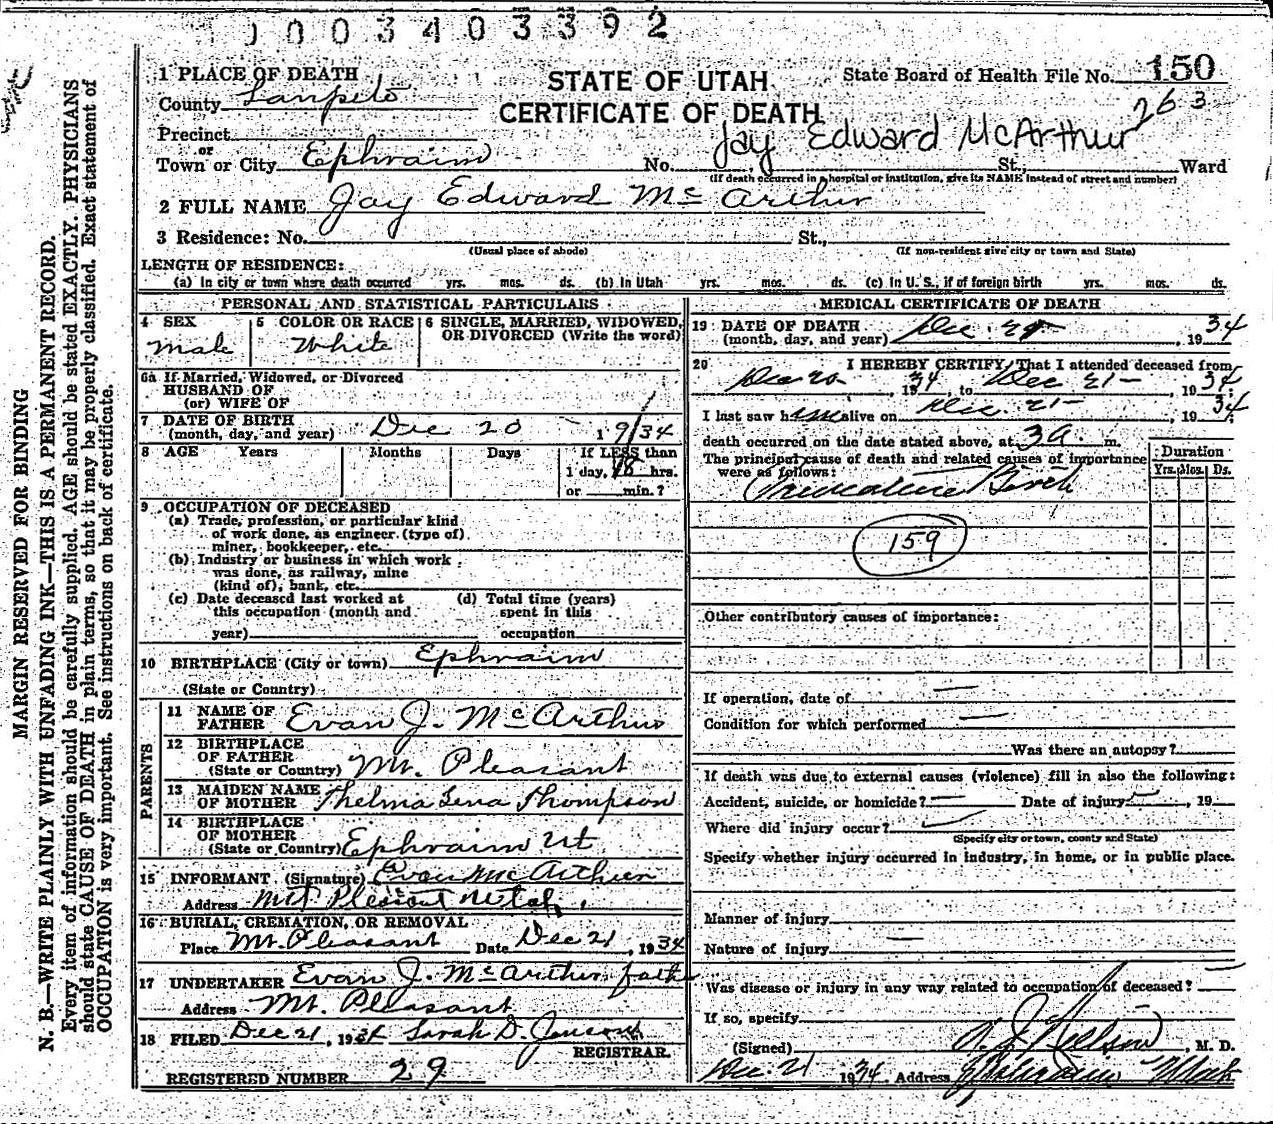 1003403392
1 PLACE OF DEATH
STATE OF UTAH
State Board of Health File No. 150
County Sanpete
CERTIFICATE OF DEATH
263
Precinct
or
Jay Edward McArthur
Town or City Ephraim No. St., Ward
(If death occurred in a hospital or institution, give its NAME instead of street and number)
2 FULL NAME Jay Edward Mc Arthur
3 Residence: No. St.,
(Usual place of abode) (If non-resident give city or town and State)
LENGTH OF RESIDENCE:
(a) In city or town where death occurred yrs. mos. ds. (b) In Utah yrs. mos. ds. (c) In U. S., if of foreign birth yrs. mos. ds.
PERSONAL AND STATISTICAL PARTICULARS
4 SEX 5 COLOR OR RACE 6 SINGLE, MARRIED, WIDOWED,
OR DIVORCED (Write the word)
Male White
6a If Married, Widowed, or Divorced
HUSBAND OF
(or) WIFE OF
7 DATE OF BIRTH
(month, day, and year) Dec 20 19/34
8 AGE Years Months Days If LESS than
1 day, 18 hrs.
or min.?
9 OCCUPATION OF DECEASED
(a) Trade, profession, or particular kind
of work done, as engineer (type of)
miner, bookkeeper, etc.
(b) Industry or business in which work
was done, as railway, mine
(kind of), bank, etc.
(c) Date deceased last worked at (d) Total time (years)
this occupation (month and spent in this
year) occupation
10 BIRTHPLACE (City or town) Ephraim
(State or Country)
PARENTS
11 NAME OF
FATHER Evan J. Mc Arthur
12 BIRTHPLACE
OF FATHER
(State or Country) Mt. Pleasant
13 MAIDEN NAME
OF MOTHER Thelma Lena Thompson
14 BIRTHPLACE
OF MOTHER
(State or Country) Ephraim Ut
15 INFORMANT (Signature) Evan McArthur
Address Mt Pleasant Utah.
16 BURIAL, CREMATION, OR REMOVAL
Place Mt. Pleasant Date Dec 21, 1934
17 UNDERTAKER Evan J. McArthur, fath
Address Mt. Pleasant
18 FILED Dec 21, 1934 Sarah D.
REGISTRAR.
REGISTERED NUMBER 29
MEDICAL CERTIFICATE OF DEATH
19 DATE OF DEATH
(month, day, and year) Dec. 21, 1934
20 I HEREBY CERTIFY, That I attended deceased from
Dec 20, 1934, to Dec 21, 1934
I last saw him alive on Dec. 21, 1934
death occurred on the date stated above, at 3 a. m.
The principal cause of death and related causes of importance
were as follows:
Duration
Yrs. Mos. Ds.
Premature Birth
159
Other contributory causes of importance:
If operation, date of
Condition for which performed
Was there an autopsy?
If death was due to external causes (violence) fill in also the following:
Accident, suicide, or homicide? Date of injury , 19
Where did injury occur?
(Specify city or town, county and State)
Specify whether injury occurred in industry, in home, or in public place.
Manner of injury
Nature of injury
Was disease or injury in any way related to occupation of deceased?
If so, specify
(Signed) Nielson, M. D.
Dec 21 1934 Address Ephraim Utah
MARGIN RESERVED FOR BINDING
N. B.—WRITE PLAINLY WITH UNFADING INK—THIS IS A PERMANENT RECORD.
Every item of information should be carefully supplied. AGE should be stated EXACTLY. PHYSICIANS
should state CAUSE OF DEATH in plain terms, so that it may be properly classified. Exact statement of
OCCUPATION is very important. See instructions on back of certificate.